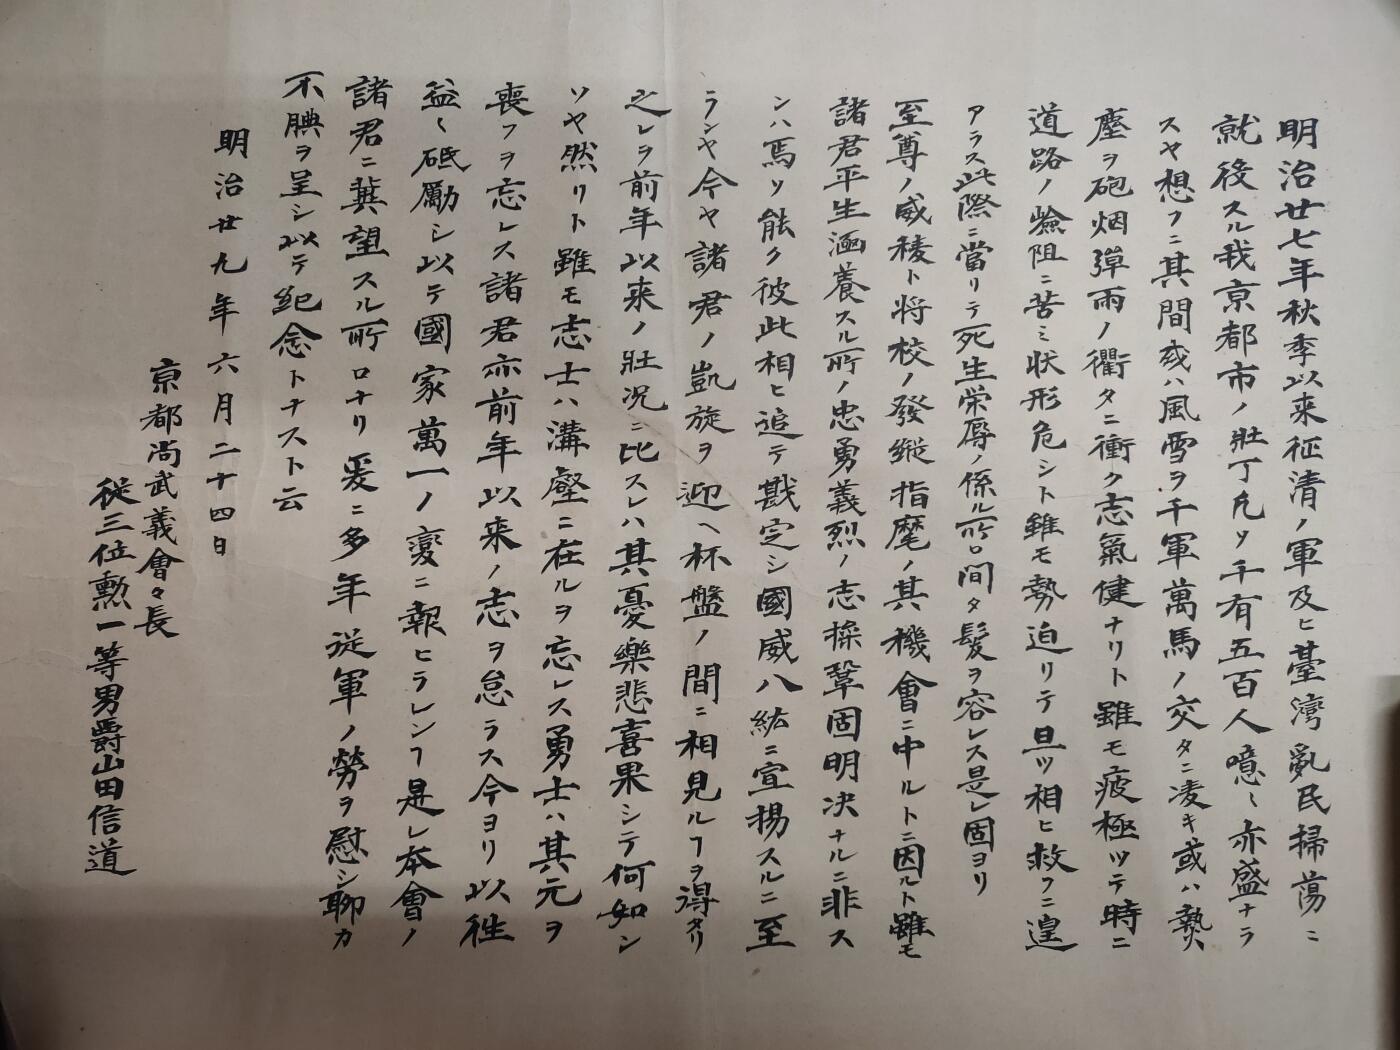 明治廿七年秋季以来征清ノ軍及ヒ臺湾亂民掃蕩ニ
就後スル我京都市ノ壯丁凡ソ千有五百人噫〻亦盛ナラ
スヤ想フニ其間或ハ風雪ヲ千軍萬馬ノ交タニ凌キ或ハ熱
塵ヲ砲烟彈雨ノ衢タニ衝ク志氣健ナリト雖モ疲極ツテ時ニ
道路ノ嶮阻ニ苦ミ状形危シト雖モ勢迫リテ旦ツ相ヒ救フニ遑
アラス此際ニ當リテ死生栄辱ノ係ル所ロ間タ髮ヲ容レス是レ固ヨリ
至尊ノ威稜ト将校ノ發縦指麾ノ其機會ニ中ルトニ因ルト雖モ
諸君平生涵養スル所ノ忠勇義烈ノ志操鞏固明决ナルニ非ス
ンハ焉ソ能ク彼此相ヒ追テ戡定シ國威八紘ニ宣揚スルニ至
ランヤ今ヤ諸君ノ凱旋ヲ迎ヘ杯盤ノ間ニ相見ルヿヲ得タリ
之レヲ前年以来ノ壯况ニ比スレハ其憂樂悲喜果シテ何如ン
ソヤ然リト雖モ志士ハ溝壑ニ在ルヲ忘レス勇士ハ其元ヲ
喪フヲ忘レス諸君亦前年以来ノ志ヲ怠ラス今ヨリ以徃
益〻砥勵シ以テ國家萬一ノ變ニ報ヒラレンヿ是レ本會ノ
諸君ニ冀望スル所ロナリ爰ニ多年従軍ノ勞ヲ慰シ聊カ
不腆ヲ呈シ以テ紀念トナスト云
明治廿九年六月二十四日
京都尚武義會々長
従三位勲一等男爵山田信道